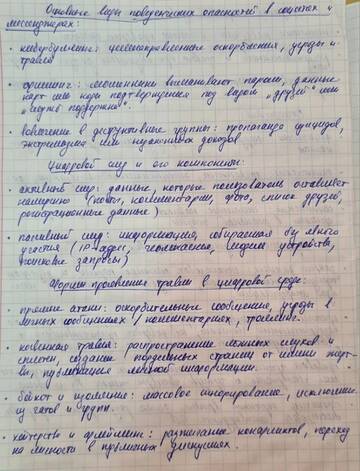 Основные виды поведенческих опасностей в соцсетях и
мессенджерах:
• кибербуллинг: целенаправленные оскорбления, угрозы и
травля
• фишинг: мошенники выманивают пароли, данные
карт или коды подтверждения под видом "друзей" или
"службы поддержки".
• вовлечение в деструктивные группы: пропаганда суицидов,
экстремизма или
Цифровой след и его компоненты:
• активный след: данные, которые пользователь оставляет
намеренно (посты, комментарии, фото, список друзей,
регистрационные данные)
• пассивный след: информация, собираемая без явного
участия (IP-адрес, геолокация, модель устройства,
поисковые запросы)
Формы проявления травли в цифровой среде:
• прямые атаки: оскорбительные сообщения, угрозы в
личных сообщениях / комментариях, троллинг.
• косвенная травля: распространение ложных слухов и
сплетен, создание поддельных страниц от имени жерт-
вы, публикация личной информации.
• бойкот и изоляция: массовое игнорирование, исключение
из чатов и групп.
• хейтерство и флейминг: разжигание конфликтов, переход
на личности в публичных дискуссиях.